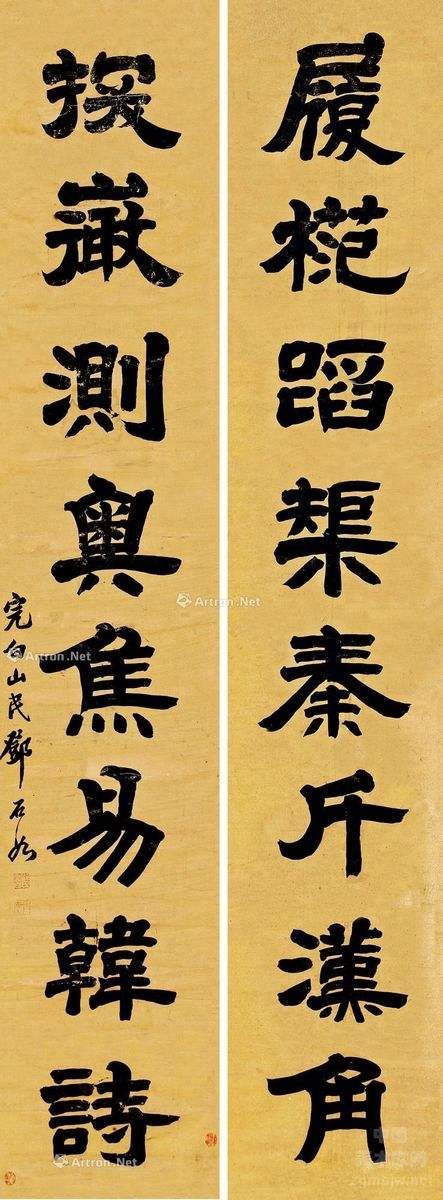 履蹈榘秦斤漢角
探微測奧焦易韓詩
完白山民鄧石如
Artron.Net
Artron.Net
Artron.Net
Artron.Net